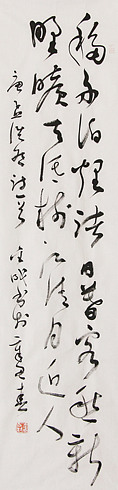 移舟泊煙渚日暮客愁新
野曠天低樹江清月近人
唐孟浩然詩一首